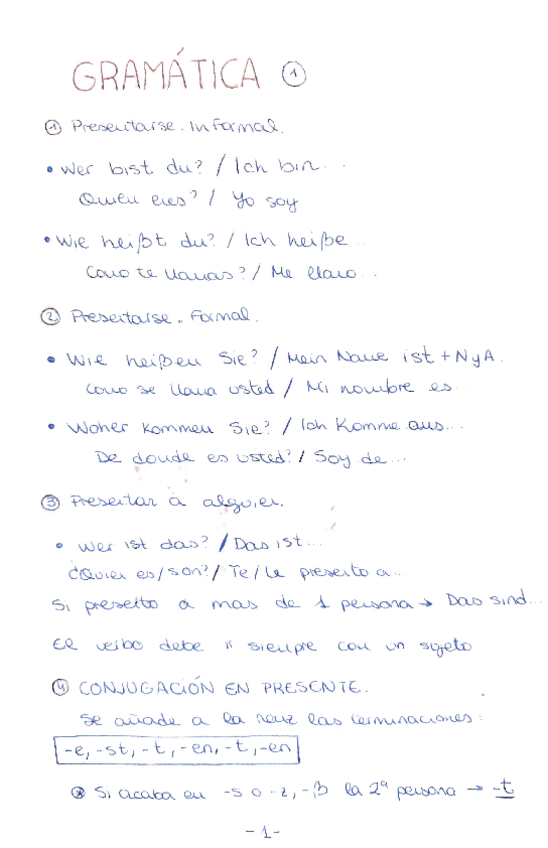 GRAMÁTICA 1
1 Presentarse. Informal.
• Wer bist du? / Ich bin...
Quien eres? / Yo soy
• Wie heißt du? / Ich heiße...
Como te llamas? / Me llamo...
2 Presentarse. Formal.
• Wie heißen Sie? / Mein Name ist + NyA.
Como se llama usted / Mi nombre es...
• Woher kommen Sie? / Ich Komme aus...
De donde es usted? / Soy de...
3 Presentar a alguien.
• Wer ist das? / Das ist...
¿Quien es/son? / Te/Le presento a...
Si presento a mas de 1 persona → Das sind...
El verbo debe ir siempre con un sujeto
4 CONJUGACIÓN EN PRESENTE.
Se añade a la raiz las terminaciones:
-e, -st, -t, -en, -t, -en
* Si acaba en -s o -z, -ß la 2ª persona → -t
-1-